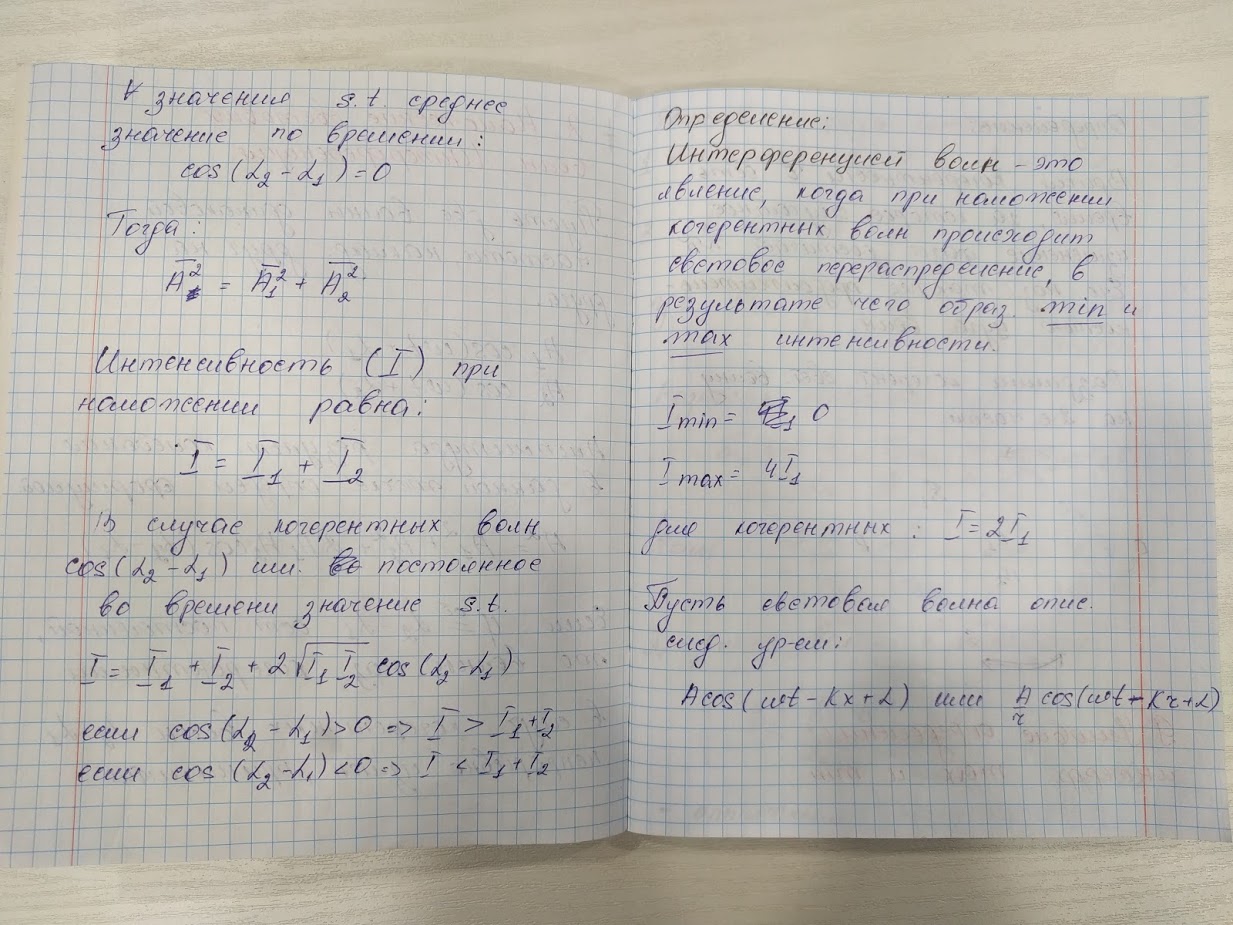 ∀ значения s.t. среднее
значение по времени:
cos(α₂ - α₁) = 0
Тогда:
A̅² = A̅₁² + A̅₂²
Интенсивность (I) при
наложении равна:
I = I₁ + I₂
В случае когерентных волн
cos(α₂ - α₁) им. постоянное
во времени значение s.t.
I = I₁ + I₂ + 2√(I₁ I₂) cos(α₂ - α₁)
если cos(α₂ - α₁) > 0 => I > I₁ + I₂
если cos(α₂ - α₁) < 0 => I < I₁ + I₂
Определение:
Интерференцией волн - это
явление, когда при наложении
когерентных волн происходит
световое перераспределение, в
результате чего образ. min и
max интенсивности.
I min = 0
I max = 4I₁
для когерентных : I = 2I₁
Пусть световая волна опис.
след. ур-ем:
Acos(ωt - kx + α) или A/r cos(ωt - kr + α)